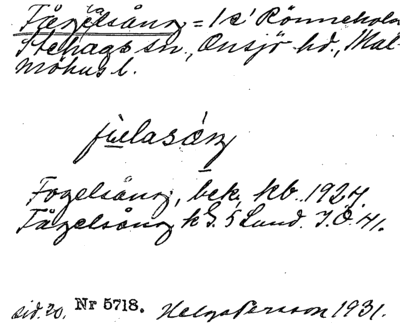 Fågelsång = 1 e' Rönneholm
Stehags sn., Onsjö hd., Mal-
möhus l.
fúelasåŋ
Fogelsång, bek. kb. 1924.
Fågelsång k G. 5 Lund. J.Ö. 41.
sid. 20. Nr 5718. Helge Persson 1931.